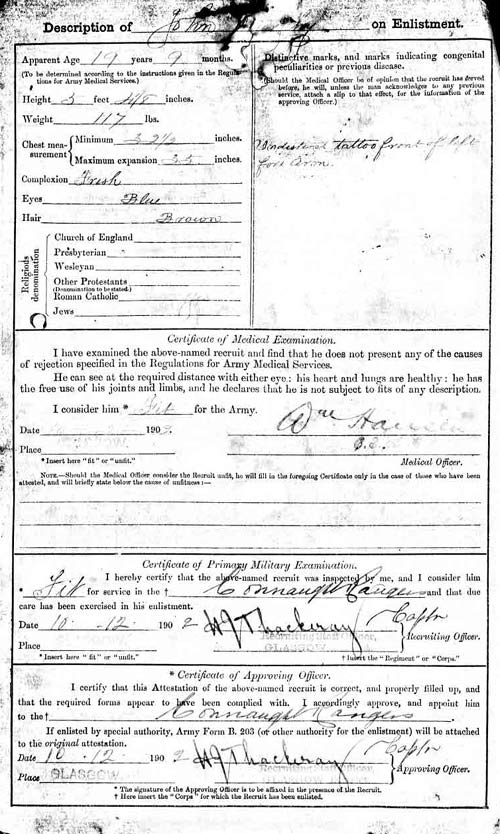 Description of John on Enlistment.
Apparent Age 19 years 9 months.
(To be determined according to the instructions given in the Regulations for Army Medical Services.)
Height 5 feet inches.
Weight 117 lbs.
Chest measurement { Minimum inches.
Maximum expansion inches.
Complexion Fresh
Eyes Blue
Hair Brown
Religious denomination
Church of England
Presbyterian
Wesleyan
Other Protestants
(Denomination to be stated.)
Roman Catholic
Jews
Distinctive marks, and marks indicating congenital
peculiarities or previous disease.
(Should the Medical Officer be of opinion that the recruit has served
before, he will, unless the man acknowledges to any previous
service, attach a slip to that effect, for the information of the
approving Officer.)
tattoo front of left
fore arm.
Certificate of Medical Examination.
I have examined the above-named recruit and find that he does not present any of the causes
of rejection specified in the Regulations for Army Medical Services.
He can see at the required distance with either eye: his heart and lungs are healthy: he has
the free use of his joints and limbs, and he declares that he is not subject to fits of any description.
I consider him * Fit for the Army.
Date 190
Place
* Insert here "fit" or "unfit."
Medical Officer.
NOTE.—Should the Medical Officer consider the Recruit unfit, he will fill in the foregoing Certificate only in the case of those who have been
attested, and will briefly state below the cause of unfitness:—
Certificate of Primary Military Examination.
I hereby certify that the above-named recruit was inspected by me, and I consider him
* Fit for service in the † Connaught Rangers and that due
care has been exercised in his enlistment.
Date 10. 12. 190 2 H J Thackeray Captn
Recruiting Officer.
Place
Recruiting Staff Officer,
GLASGOW
* Insert here "fit" or "unfit."
† Insert the "Regiment" or "Corps."
* Certificate of Approving Officer.
I certify that this Attestation of the above-named recruit is correct, and properly filled up, and
that the required forms appear to have been complied with. I accordingly approve, and appoint him
to the † Connaught Rangers.
If enlisted by special authority, Army Form B. 203 (or other authority for the enlistment) will be attached
to the original attestation.
Date 10. 12. 190 2 H J Thackeray Captn
Approving Officer.
Place GLASGOW
Recruiting Staff Officer,
* The signature of the Approving Officer is to be affixed in the presence of the Recruit.
† Here insert the "Corps" for which the Recruit has been enlisted.